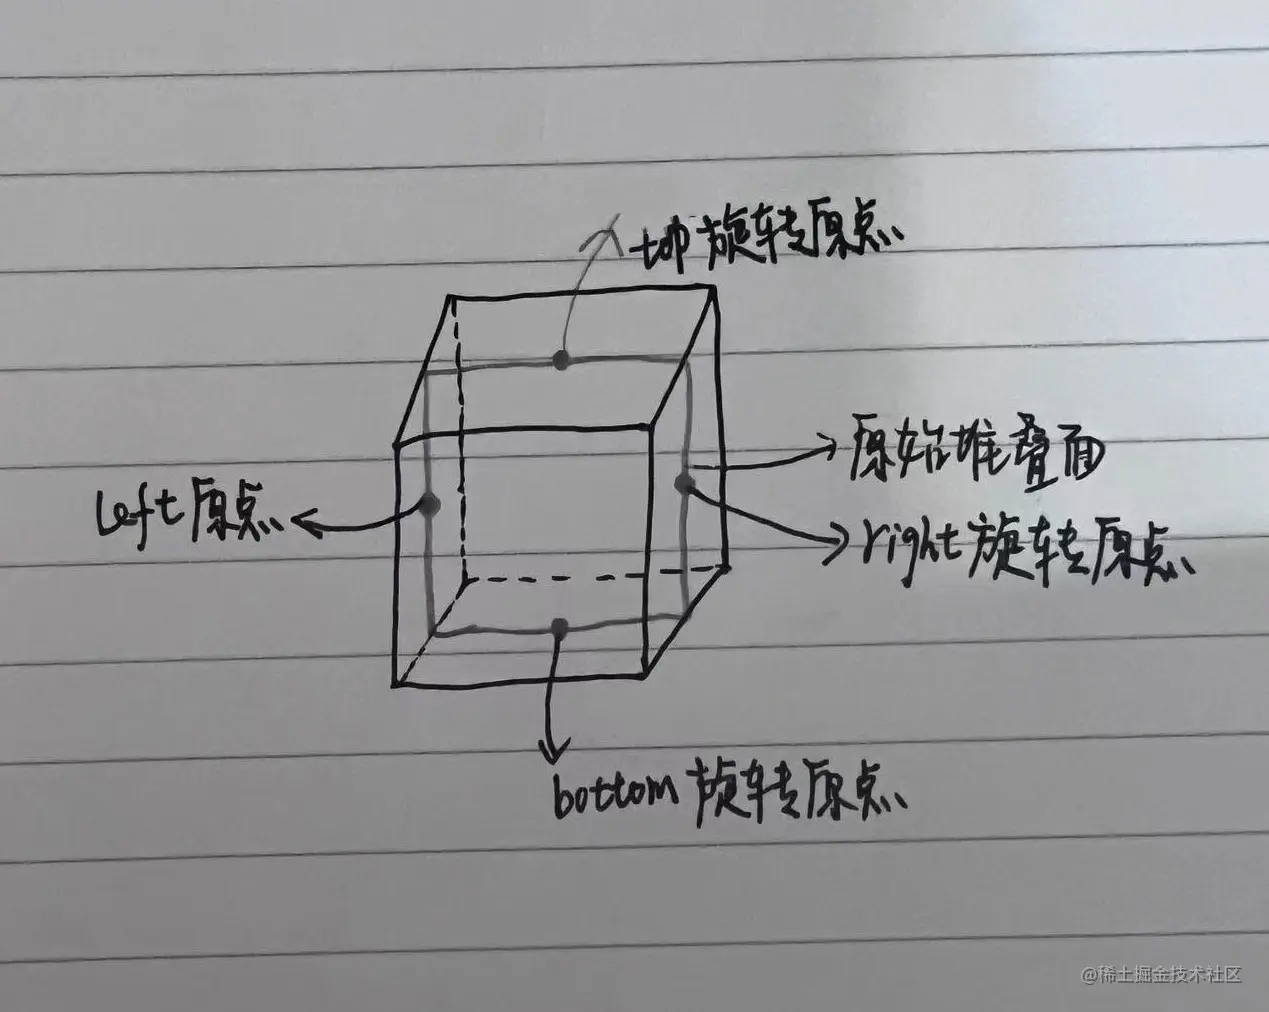 top旋转原点
原始堆叠面
left原点
right旋转原点
bottom旋转原点
@稀土掘金技术社区